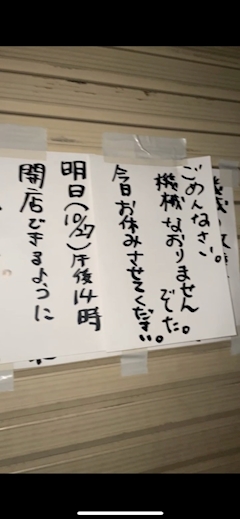 ごめんなさい
機械なおりません
でした。
今日お休みさせてください。
明日(10/27)午後14時
開店できるように